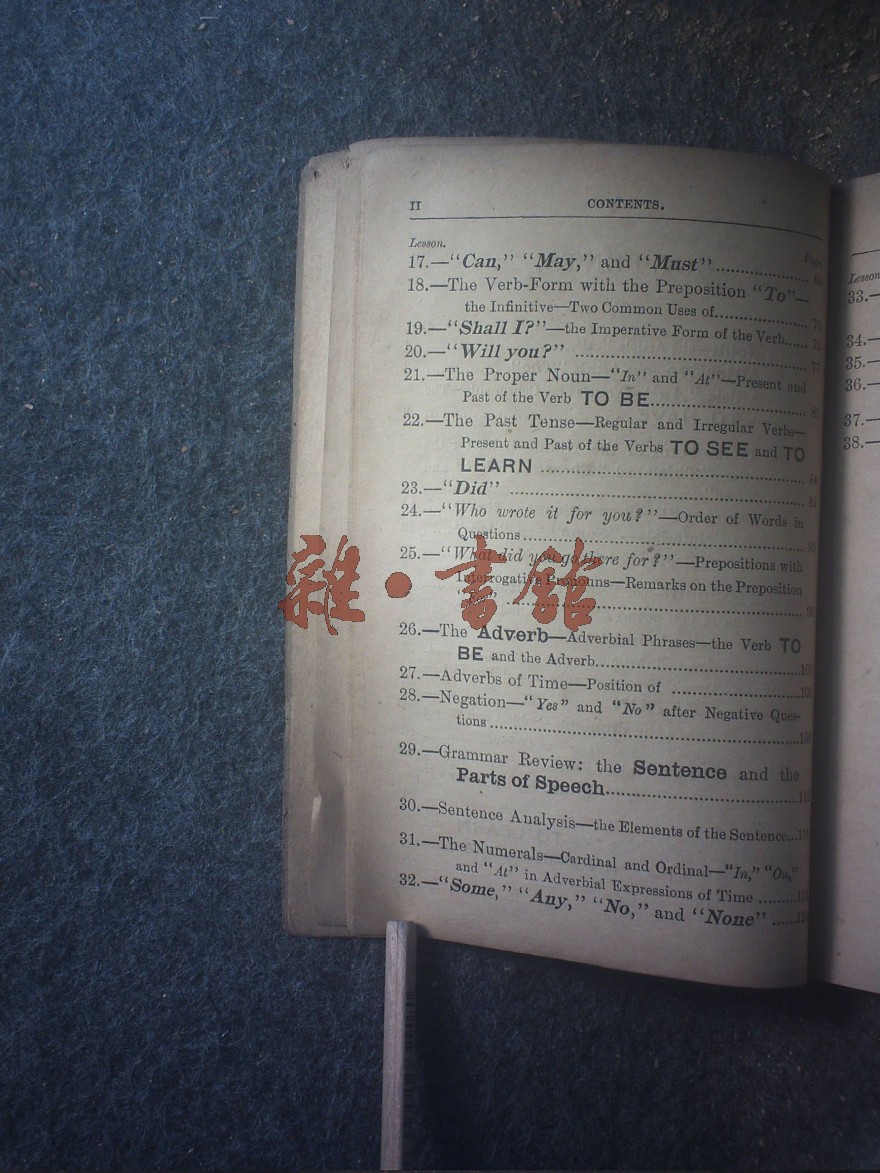 II
CONTENTS.
Lesson.
Page.
17.—"Can," "May," and "Must"
18.—The Verb-Form with the Preposition "To"—
the Infinitive—Two Common Uses of
19.—"Shall I?"—the Imperative Form of the Verb
20.—"Will you?"
21.—The Proper Noun—"In" and "At"—Present and
Past of the Verb TO BE
22.—The Past Tense—Regular and Irregular Verbs—
Present and Past of the Verbs TO SEE and TO
LEARN
23.—"Did"
24.—"Who wrote it for you?"—Order of Words in
Questions
25.—"What did you go there for?"—Prepositions with
Interrogative Pronouns—Remarks on the Preposition
雜·書館
26.—The Adverb—Adverbial Phrases—the Verb TO
BE and the Adverb
27.—Adverbs of Time—Position of
28.—Negation—"Yes" and "No" after Negative Ques-
tions
29.—Grammar Review: the Sentence and the
Parts of Speech
30.—Sentence Analysis—the Elements of the Sentence
31.—The Numerals—Cardinal and Ordinal—"In," "On,"
and "At" in Adverbial Expressions of Time
32.—"Some," "Any," "No," and "None"
Lesson
33.—
34.—
35.—
36.—
37.—
38.—